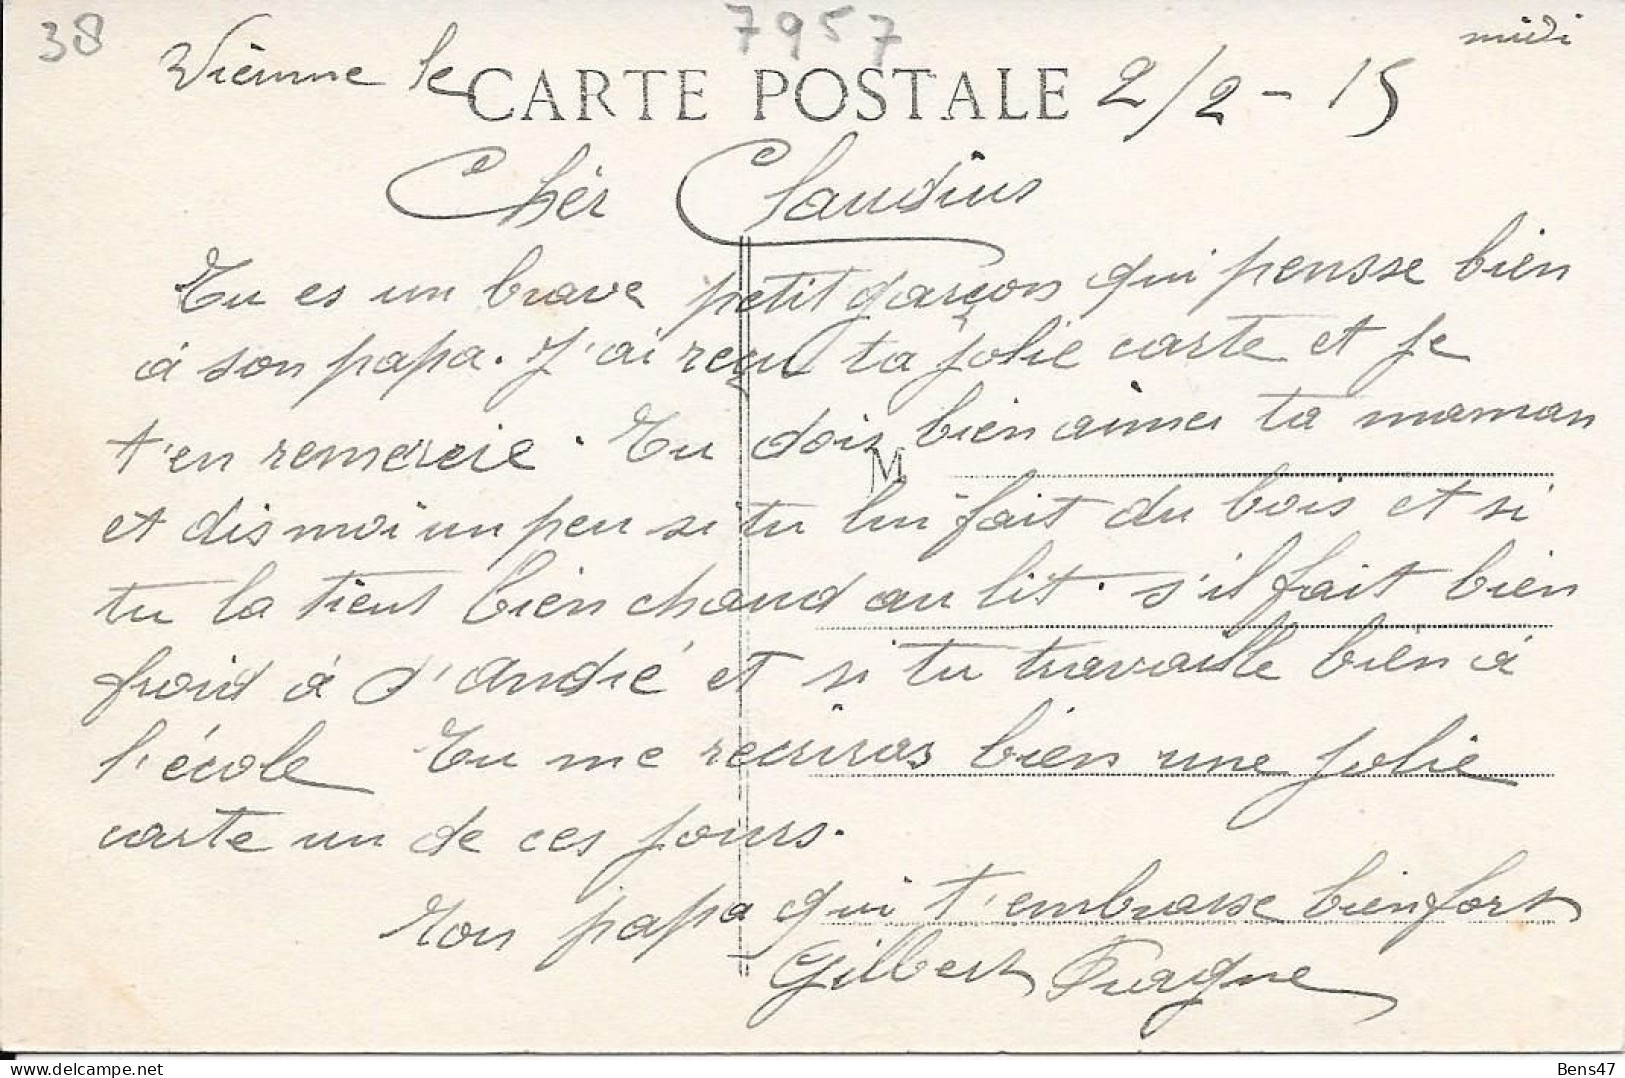 38
7957
midi
Vienne le
CARTE POSTALE
2/2-15
Chér Claudius
Tu es un brave petit garçon qui pensse bien
à son papa. J'ai reçu ta jolie carte et je
t'en remercie. Tu dois bien aimer ta maman
M
et dis moi un peu si tu lui fait du bois et si
tu la tient bien chaud au lit. s'il fait bien
froid à St André et si tu travaille bien à
l'école Tu me recriras bien une jolie
carte un de ces jours.
Ton papa qui t'embrasse bien fort
Gilbert
Bens47